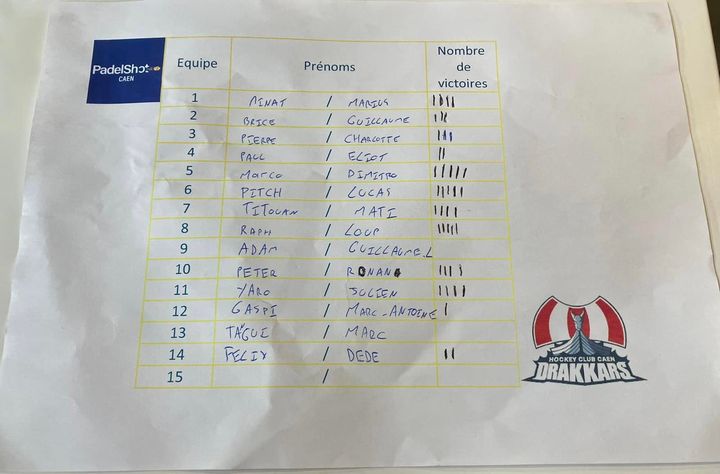 PadelShot
CAEN
Equipe Prénoms Nombre de victoires
1 MINAT / MARIUS IIII
2 BRICE / GUILLAUME III
3 PIERRE / CHARLOTTE III
4 PAUL / ELIOT II
5 MARCO / DIMITRO IIIII
6 PITCH / LUCAS IIIII
7 TITOUAN / MATI IIII
8 RAPH / LOUP IIIII
9 ADAM / GUILLAUME.L
10 PETER / RONAN IIII
11 YARO / JULIEN IIII
12 GASPI / MARC-ANTOINE I
13 TAGUI / MARC
14 FELIX / DEDE II
15 /
HOCKEY CLUB CAEN
DRAKKARS